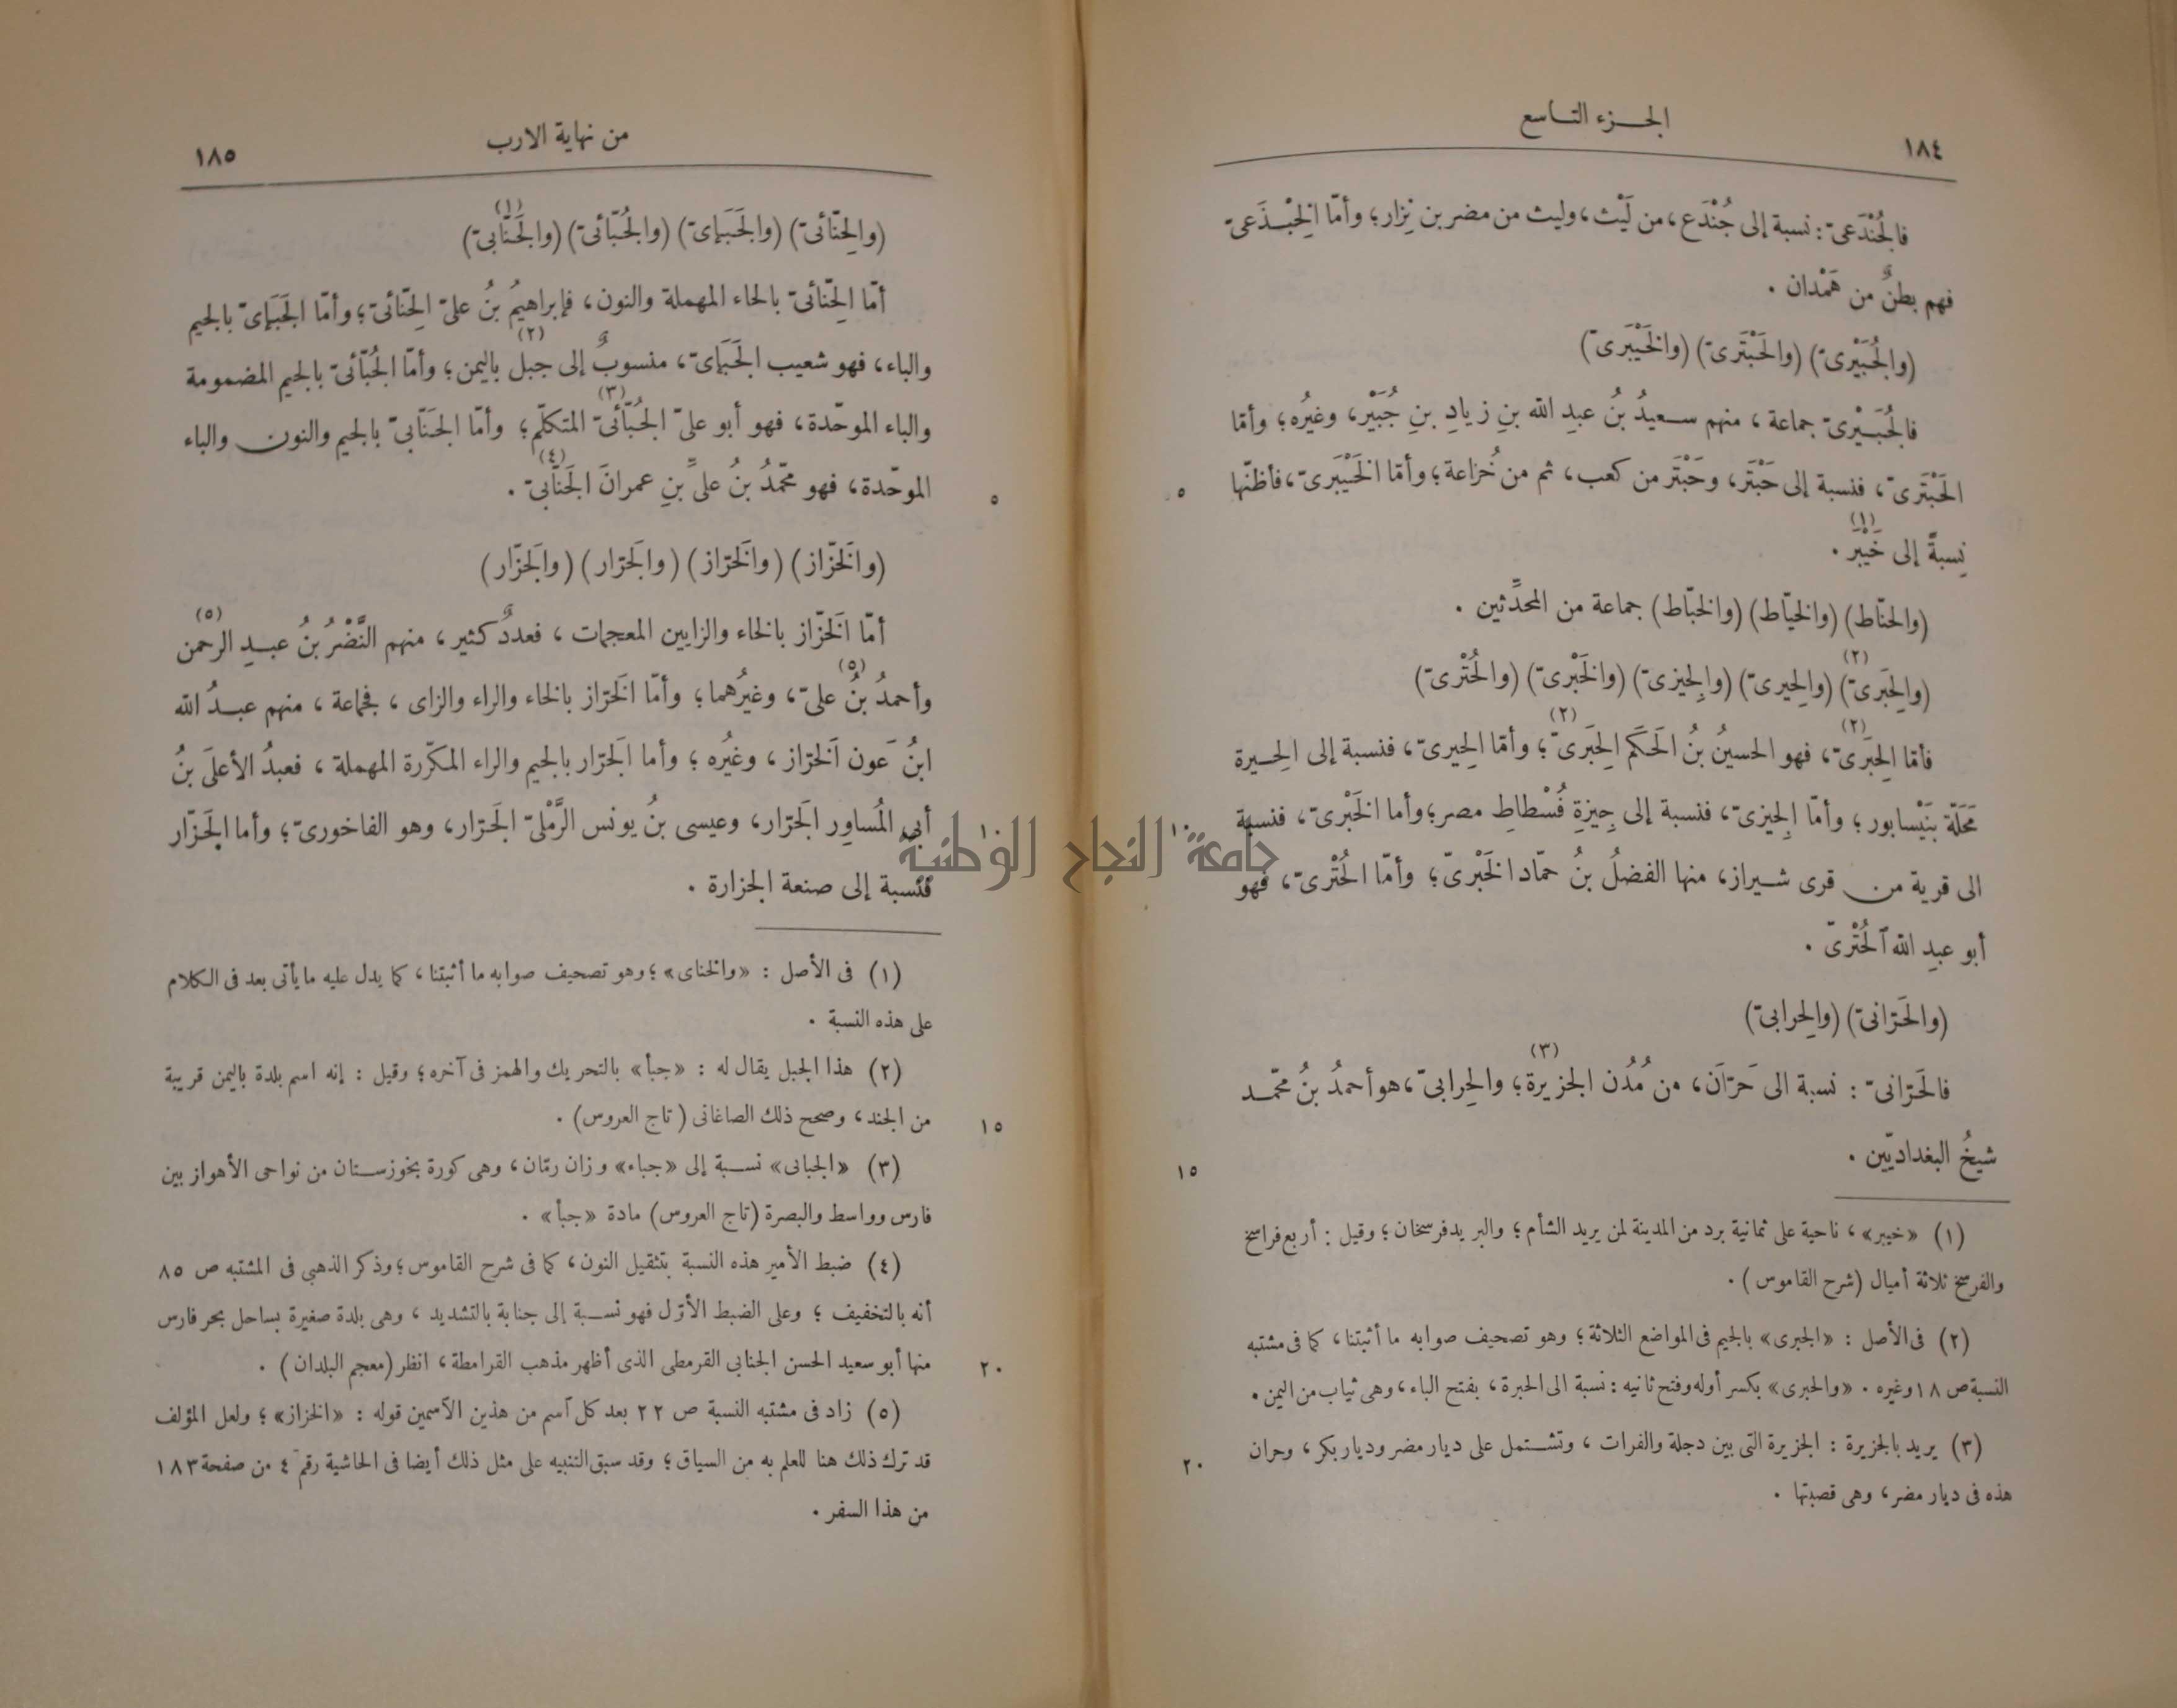 ١٨٤
الجزء التاسع
فالجُنْدَعىّ: نسبة إلى جُنْدَع، من لَيْث، وليث من مضر بن نِزار؛ وأمّا الخِبْذَعىّ
فهم بطنٌ من هَمْدان .
(والجُبَيْرىّ) (والحَبْتَرىّ) (والخَيْبَرىّ)
فالجُبَيْرىّ جماعة، منهم سعيدُ بنُ عبدِ الله بنِ زيادِ بنِ جُبَيْر، وغيرُه؛ وأمّا
الحَبْتَرىّ، فنسبة إلى حَبْتَر، وحَبْتَر من كعب، ثم من خُزاعة؛ وأمّا الخَيْبَرىّ، فأظنّها
٥
نِسبةً إلى خَيْبَر (١) .
(والحنّاط) (والخيّاط) (والخبّاط) جماعة من المحدِّثين .
(والحِبَرىّ) (٢) (والحِيرىّ) (والجِيزىّ) (والخَبْرىّ) (والخُتْرىّ)
فأمّا الحِبَرىّ (٢)، فهو الحسينُ بنُ الحَكَم الحِبَرىّ (٢)؛ وأمّا الحِيرىّ، فنسبة إلى الحِيرة
مَحَلّة بنَيْسابور؛ وأمّا الجِيزىّ، فنسبة إلى جِيزةِ فُسْطاطِ مصر؛ وأما الخَبْرىّ، فنسبة
١٠
الى قرية من قرى شيراز، منها الفضلُ بنُ حمّاد الخَبْرىّ؛ وأمّا الخُتْرىّ، فهو
أبو عبدِ الله الخُتْرىّ .
(والحَرّانىّ) (والحِرابىّ)
فالحَرّانىّ: نسبة الى حَرّان، من مُدُن الجزيرة (٣)؛ والحِرابىّ، هو أحمدُ بنُ محمّد
شيخُ البغداديّين .
١٥
(١) «خيبر»، ناحية على ثمانية برد من المدينة لمن يريد الشأم؛ والبريد فرسخان؛ وقيل: أربع فراسخ
والفرسخ ثلاثة أميال (شرح القاموس) .
(٢) فى الأصل: «الجبرى» بالجيم فى المواضع الثلاثة؛ وهو تصحيف صوابه ما أثبتنا، كما فى مشتبه
النسبة ص ١٨ وغيره . «والحبرى» بكسر أوله وفتح ثانيه: نسبة الى الحبرة، بفتح الباء، وهى ثياب من اليمن .
(٣) يريد بالجزيرة: الجزيرة التى بين دجلة والفرات، وتشتمل على ديار مضر وديار بكر، وحران
٢٠
هذه فى ديار مضر، وهى قصبتها .
من نهاية الارب
١٨٥
(والحِنّائىّ) (والجَبَإىّ) (والجُبّائىّ) (والجَنّابىّ) (١)
أمّا الحِنّائىّ بالحاء المهملة والنون، فإبراهيمُ بنُ علىّ الحِنّائىّ؛ وأمّا الجَبَإىّ بالجيم
والباء، فهو شعيب الجَبَإىّ، منسوبٌ إلى جبل (٢) باليمن؛ وأمّا الجُبّائىّ بالجيم المضمومة
والباء الموحّدة، فهو أبو علىّ الجُبّائىّ (٣) المتكلّم؛ وأمّا الجَنّابىّ بالجيم والنون والباء
الموحّدة، فهو محمّدُ بنُ علىِّ بنِ عمرانَ الجَنّابىّ (٤) .
٥
(والخَزّاز) (والخَرّاز) (والجَرّار) (والجَزّار)
أمّا الخَزّاز بالخاء والزايين المعجمات، فعددٌ كثير، منهم النَّضْرُ بنُ عبدِ الرحمن (٥)
وأحمدُ بنُ علىّ (٥)، وغيرُهما؛ وأمّا الخَرّاز بالخاء والراء والزاى، فجماعة، منهم عبدُ الله
ابنُ عَون الخَرّاز، وغيُره؛ وأما الجَرّار بالجيم والراء المكرّرة المهملة، فعبدُ الأعلَى بنُ
أبى المُساوِر الجَرّار، وعيسى بنُ يونس الرَّمْلىّ الجَرّار، وهو الفاخورىّ؛ وأما الجَزّار
١٠
فنسبة إلى صنعة الجزارة .
(١) فى الأصل: «والخناى»؛ وهو تصحيف صوابه ما أثبتنا، كما يدل عليه ما يأتى بعد فى الكلام
على هذه النسبة .
(٢) هذا الجبل يقال له: «جبأ» بالتحريك والهمز فى آخره؛ وقيل: إنه اسم بلدة باليمن قريبة
من الجند، وصحح ذلك الصاغانى (تاج العروس) .
١٥
(٣) «الجبائى» نسبة إلى «جباء» وزان رمّان، وهى كورة بخوزستان من نواحى الأهواز بين
فارس وواسط والبصرة (تاج العروس) مادة «جبأ» .
(٤) ضبط الأمير هذه النسبة بتثقيل النون، كما فى شرح القاموس؛ وذكر الذهبى فى المشتبه ص ٨٥
أنه بالتخفيف؛ وعلى الضبط الأوّل فهو نسبة إلى جنابة بالتشديد، وهى بلدة صغيرة بساحل بحر فارس
منها أبو سعيد الحسن الجنابى القرمطى الذى أظهر مذهب القرامطة، انظر (معجم البلدان) .
٢٠
(٥) زاد فى مشتبه النسبة ص ٢٢ بعد كل اسم من هذين الاسمين قوله: «الخزاز»؛ ولعل المؤلف
قد ترك ذلك هنا للعلم به من السياق؛ وقد سبق التنبيه على مثل ذلك أيضا فى الحاشية رقم ٤ من صفحة ١٨٣
من هذا السفر .
جامعة النجاح الوطنية